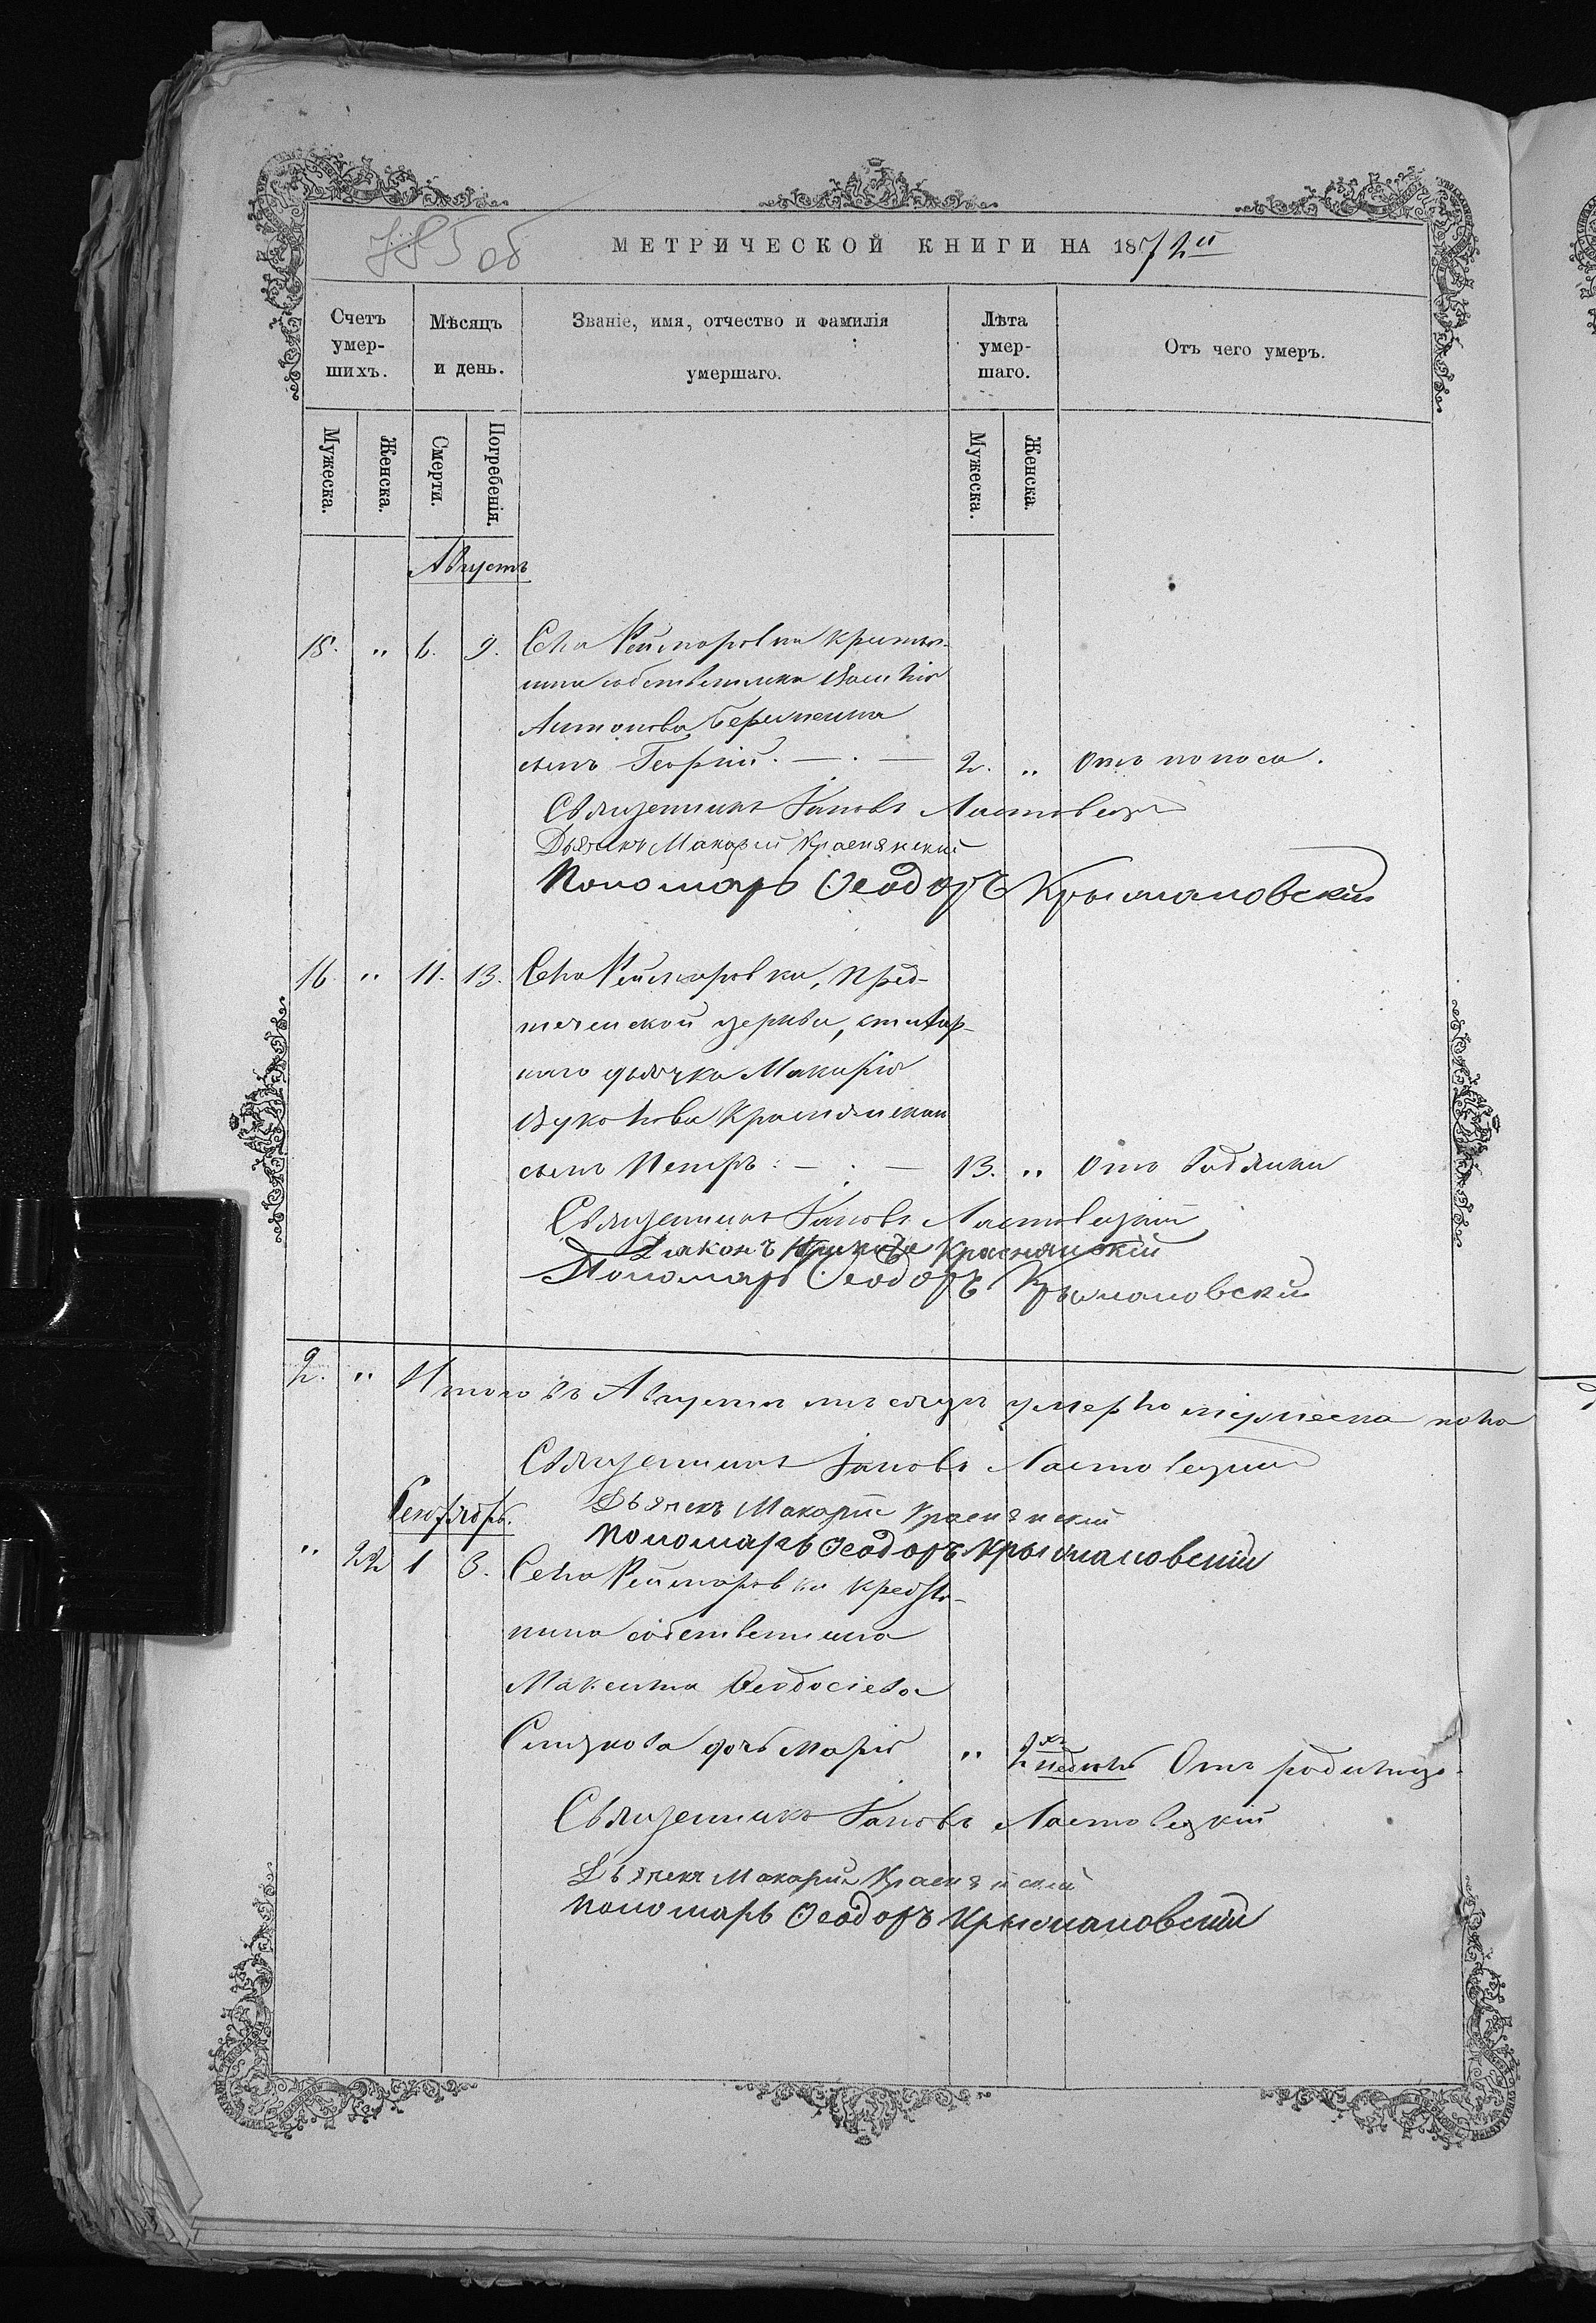 785 об
МЕТРИЧЕСКОЙ КНИГИ НА 1872й
Счетъ умершихъ. Мѣсяцъ и день. Званіе, имя, отчество и фамилія умершаго. Лѣта умершаго. Отъ чего умеръ.
Мужеска. Женска. Смерти. Погребенія. Мужеска. Женска.
Августъ
15. " 6. 9. Села Рейтаровки крестья-
нина собственника Василія
Антонова
сынъ Георгій. 2. " Отъ поноса.
Священникъ Іаковъ Ластовецкій
Дьячекъ Макарій Краснянскій
Пономарь Ѳеодоръ Крыжановскій
16. " 11. 13. Села Рейтаровки, Пред-
теченской церкви, штатнаго
дьячка Макарія
Вуколова Краснянскаго
сынъ Петръ. 13. " Отъ водянки
Священникъ Іаковъ Ластовецкій
Діаконъ Краснянскій
Пономарь Ѳеодоръ Крыжановскій
2. " Итого въ Августѣ мѣсяцѣ умерло мужеска пола
Священникъ Іаковъ Ластовецкій
Дьячекъ Макарій Краснянскій
Сентябрь.
Пономарь Ѳеодоръ Крыжановскій
" 22 1 3. Села Рейтаровки крестья-
нина собственника
Максима Ѳеодосіева
дочь Марія " 2хъ недѣль Отъ родимца.
Священникъ Іаковъ Ластовецкій
Дьячекъ Макарій Краснянскій
Пономарь Ѳеодоръ Крыжановскій